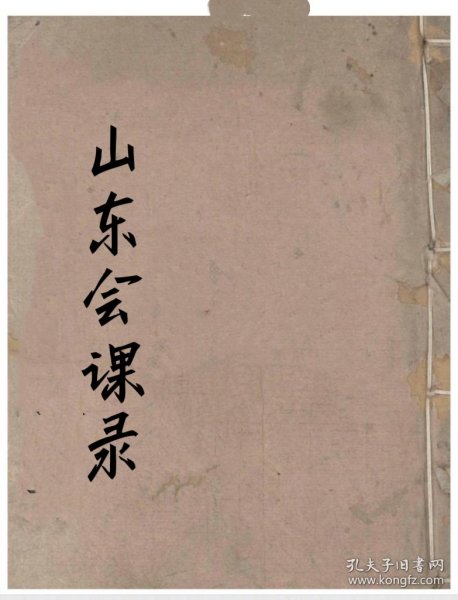 山东会课录
孔夫子旧书网
www.kongfz.com